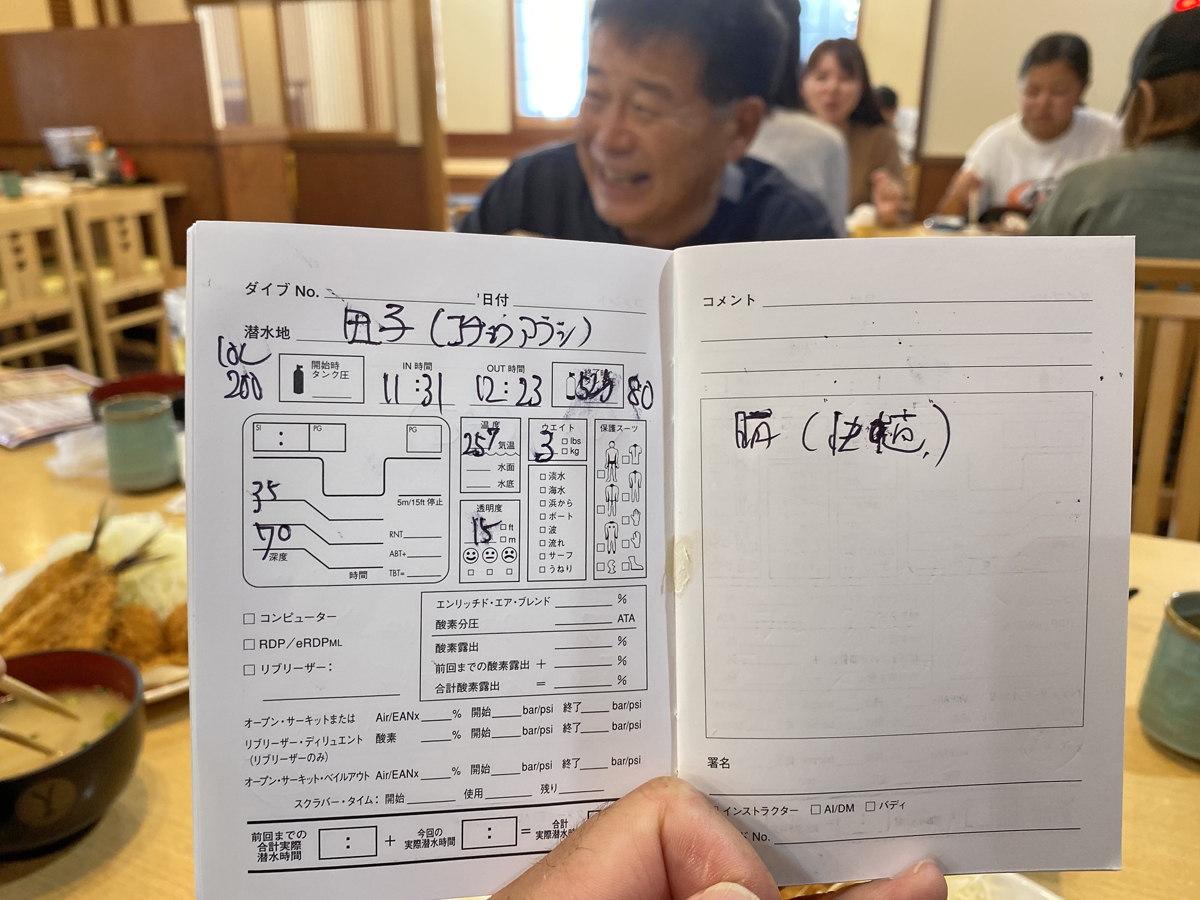 ダイブ No. 日付
潜水地 田子(コチョウアラシ)
10L
200
開始時
タンク圧
IN 時間
11:31
OUT 時間
12:23
80
SI : PG PG
35
70
深度
時間
5m/15ft 停止
RNT
ABT+
TBT=
温度
25 気温
水面
水底
透明度
15 □ ft
□ m
ウエイト
3 □ lbs
□ kg
□ 淡水
□ 海水
□ 浜から
□ ボート
□ 波
□ 流れ
□ サーフ
□ うねり
保護スーツ
□ コンピューター
□ RDP/eRDPML
□ リブリーザー:
エンリッチド・エア・ブレンド %
酸素分圧 ATA
酸素露出 %
前回までの酸素露出 + %
合計酸素露出 = %
オープン・サーキットまたは Air/EANx % 開始 bar/psi 終了 bar/psi
リブリーザー・ディリュエント 酸素 % 開始 bar/psi 終了 bar/psi
(リブリーザーのみ)
オープン・サーキット・ベイルアウト Air/EANx % 開始 bar/psi 終了 bar/psi
スクラバー・タイム:開始 使用 残り
前回までの
合計実際
潜水時間
: +
今回の
実際潜水時間
: =
合計
実際潜水時
コメント
晴
署名
インストラクター □ AI/DM □ バディ
No.